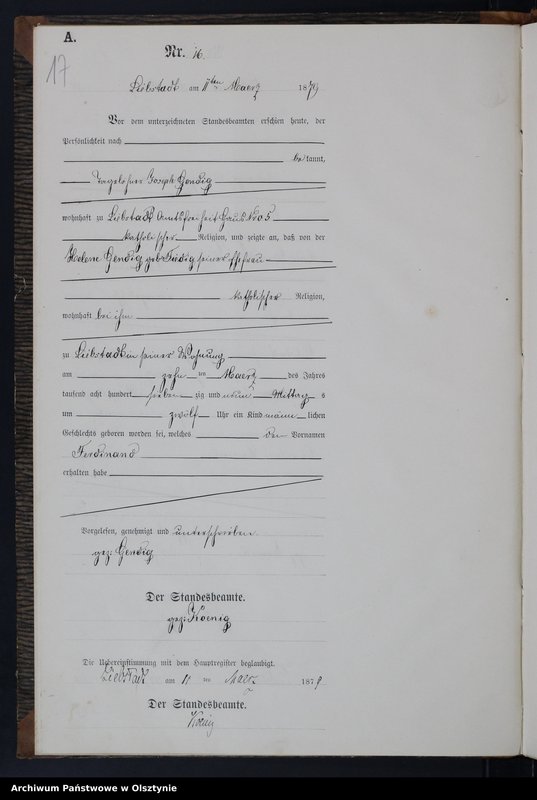 A.
Nr. 16.
17
Liebstadt am 11ten Maerz 1879
Vor dem unterzeichneten Standesbeamten erschien heute, der
Persönlichkeit nach
bekannt,
Tagelöhner Joseph Gendig
wohnhaft zu Liebstadt Amtsfreiheit Haus No 5
katholischer Religion, und zeigte an, daß von der
Helene Gendig geb. seiner Ehefrau
katholischer Religion,
wohnhaft bei ihm
zu Liebstadt in seiner Wohnung
am zehn ten Maerz des Jahres
tausend acht hundert sieben zig und neun Mittag s
um zwölf Uhr ein Kind männ lichen
Geschlechts geboren worden sei, welches den Vornamen
Ferdinand
erhalten habe
Vorgelesen, genehmigt und unterschrieben
gez. Gendig
Der Standesbeamte.
gez. Koenig
Die Uebereinstimmung mit dem Hauptregister beglaubigt.
Liebstadt am 11 ten Maerz 1879.
Der Standesbeamte.
Koenig
Archiwum Państwowe w Olsztynie